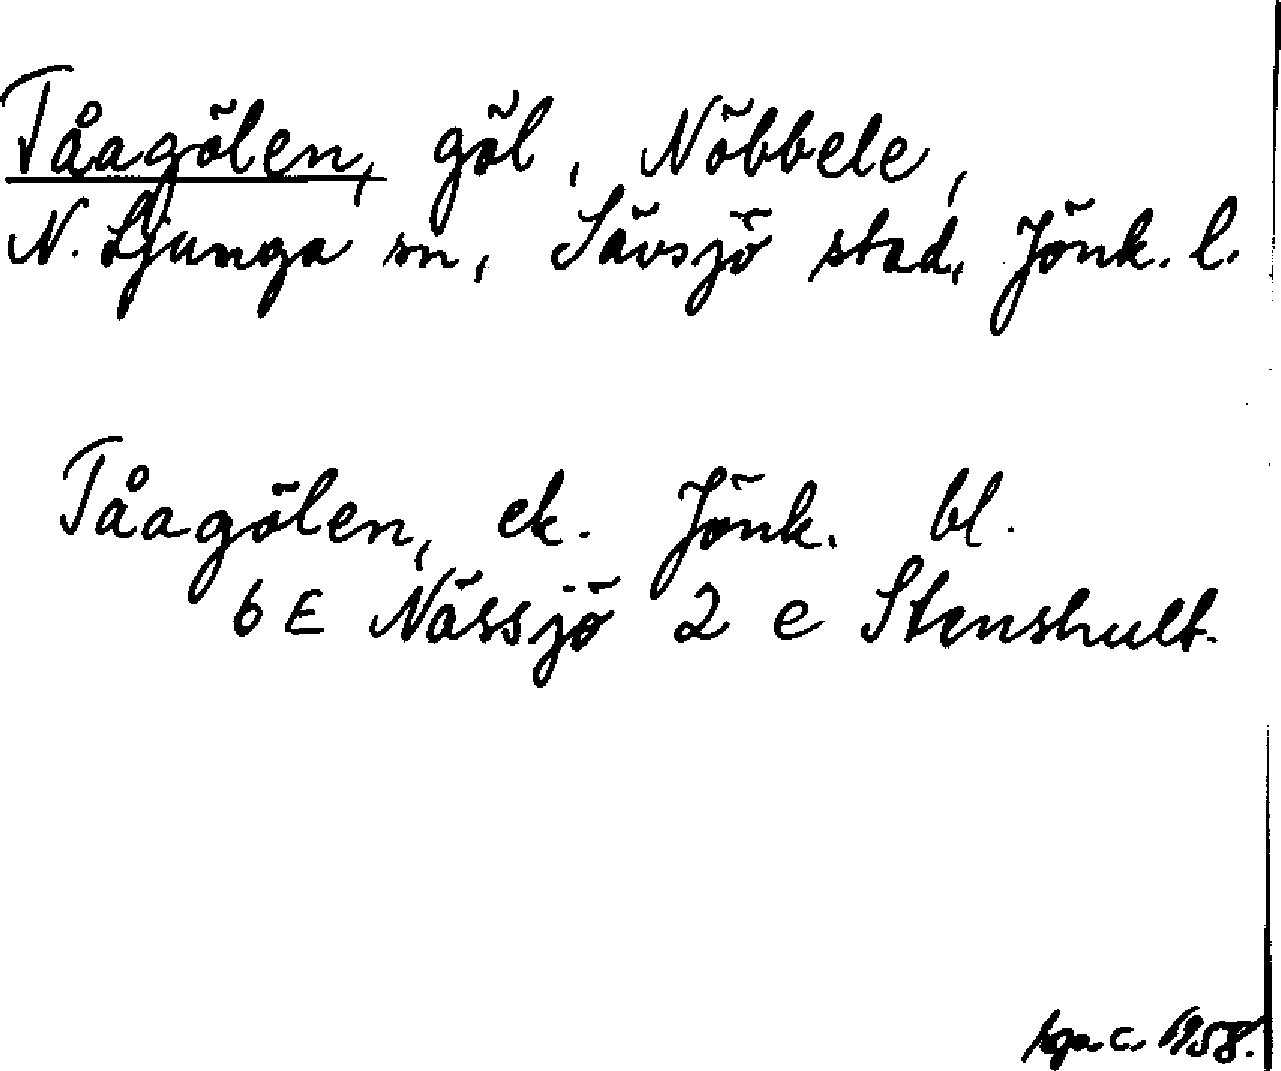 Tåagölen, göl, Nöbbele,
N. Ljunga sn, Sävsjö stad, Jönk. l.
Tåagölen, ek. Jönk. bl.
6 E Nässjö 2 e Stenshult.
c. 1958.